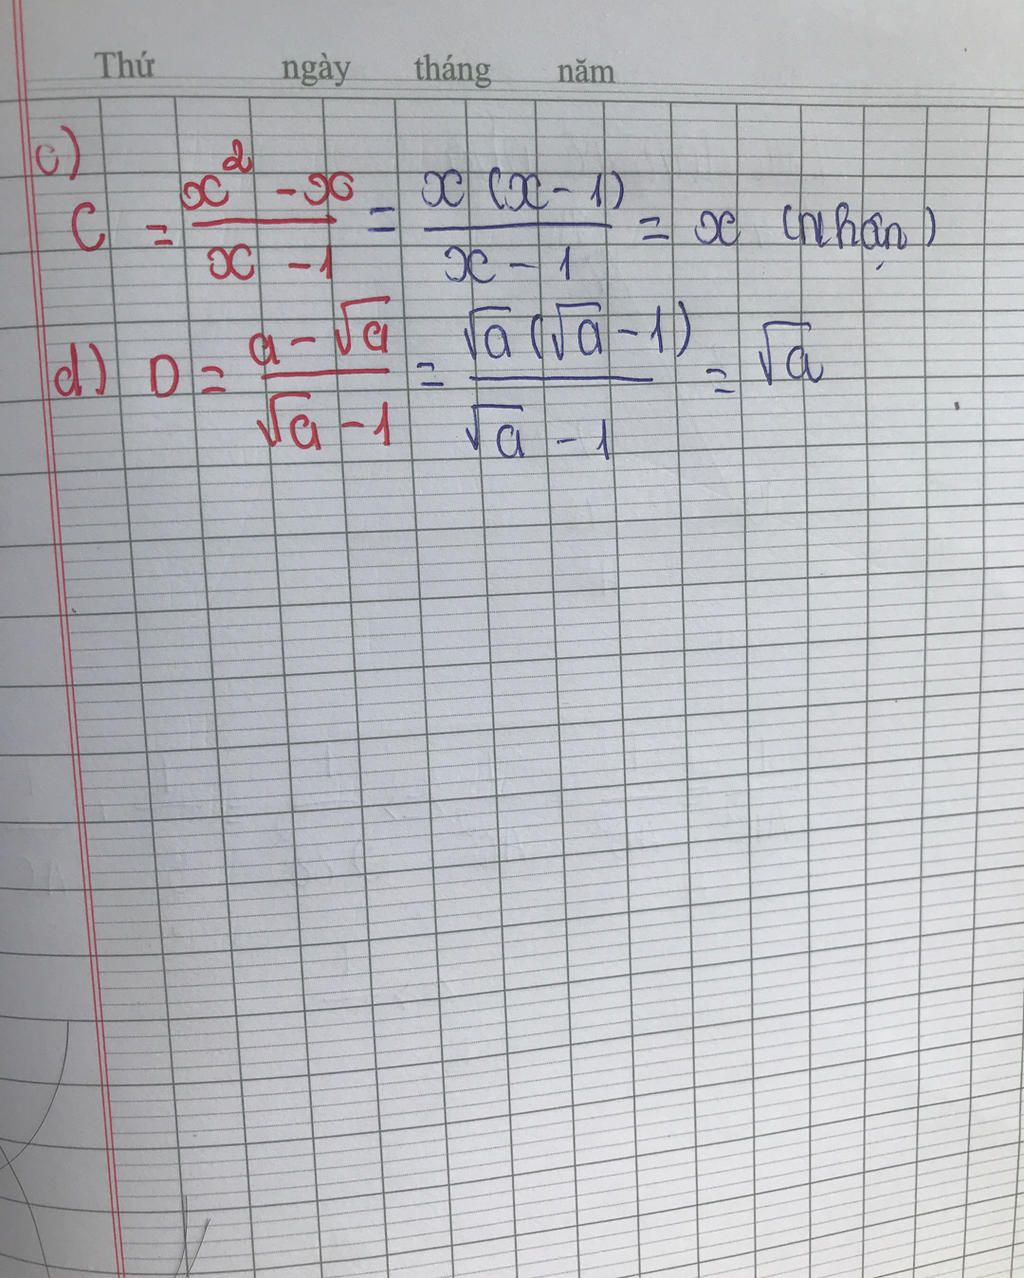 Thứ ngày tháng năm
c)
C = \frac{x^2 - x}{x - 1} = \frac{x (x - 1)}{x - 1} = x (nhận)
d) D = \frac{a - \sqrt{a}}{\sqrt{a} - 1} = \frac{\sqrt{a} (\sqrt{a} - 1)}{\sqrt{a} - 1} = \sqrt{a}